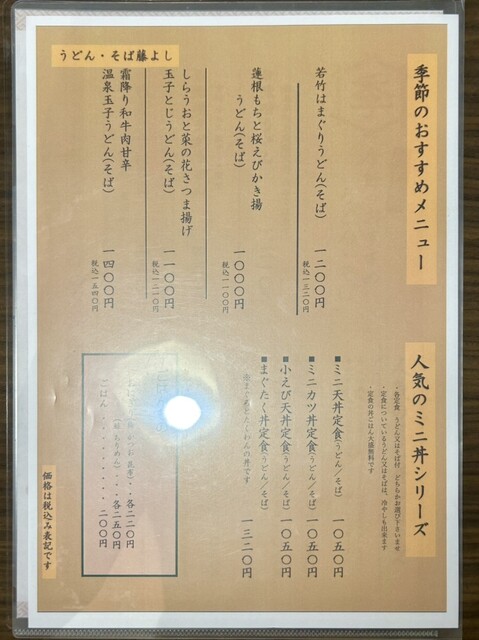 うどん・そば藤よし
季節のおすすめメニュー
若竹はまぐりうどん(そば)
一二〇〇円
税込一三二〇円
蓮根もちと桜えびかき揚
うどん(そば)
一〇〇〇円
税込一一〇〇円
しらうおと菜の花さつま揚げ
玉子とじうどん(そば)
一一〇〇円
税込一二一〇円
霜降り和牛肉甘辛
温泉玉子うどん(そば)
一四〇〇円
税込一五四〇円
人気のミニ丼シリーズ
・各定食 うどん又はそば付 どちらかお選び下さいませ
・定食についているうどん又はそばは、冷やしも出来ます
・定食の丼ごはん大盛無料です
■ミニ天丼定食(うどん/そば) 一〇五〇円
■ミニカツ丼定食(うどん/そば) 一〇五〇円
■小えび天丼定食(うどん/そば) 一〇五〇円
■まぐたく丼定食(うどん/そば) 一三二〇円
※まぐろとたくわんの丼です
各二二〇円
各二五〇円
ごはん・・・・・・・・・二〇〇円
価格は税込み表記です